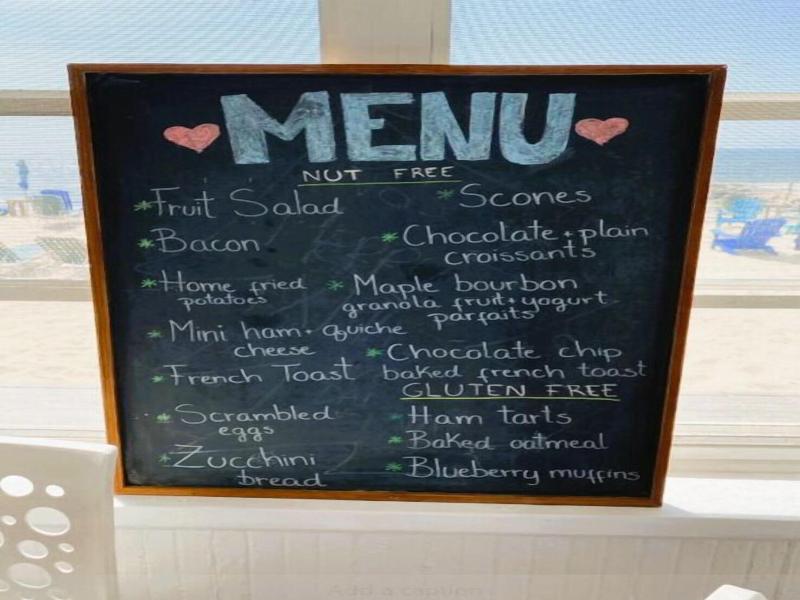 MENU
NUT FREE
*Fruit Salad
*Scones
*Bacon
*Chocolate + plain
croissants
*Home fried
potatoes
*Maple bourbon
granola fruit + yogurt
parfaits
*Mini ham + quiche
cheese
*Chocolate chip
baked french toast
*French Toast
GLUTEN FREE
*Scrambled
eggs
*Ham tarts
*Baked oatmeal
*Zucchini
bread
*Blueberry muffins
Add a caption